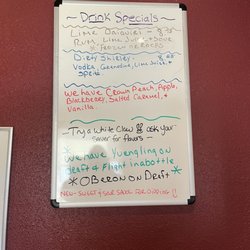 ~ Drink Specials ~
Lime Daiquiri -
Rum, Lime Juice,
Frozen or Rocks
Dirty Shirley-
Vodka, Grenadine, Lime Juice,
Sprite
We have Crown Peach, Apple,
Blackberry, Salted Caramel, +
Vanilla
- Try a White Claw ask your
server for flavors -
*We have Yuengling on
Draft & Flight in a bottle*
*OBERON on Draft*
NEW- SWEET & SOUR SAUCE FOR DIPPING !!